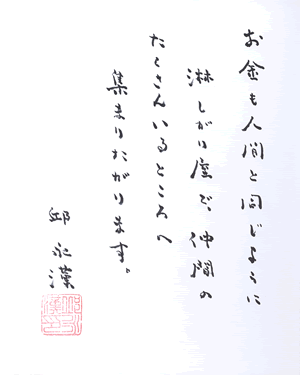 お金も人間と同じように
淋しがり屋で、仲間の
たくさんいるところへ
集まりたがります。
邱永漢